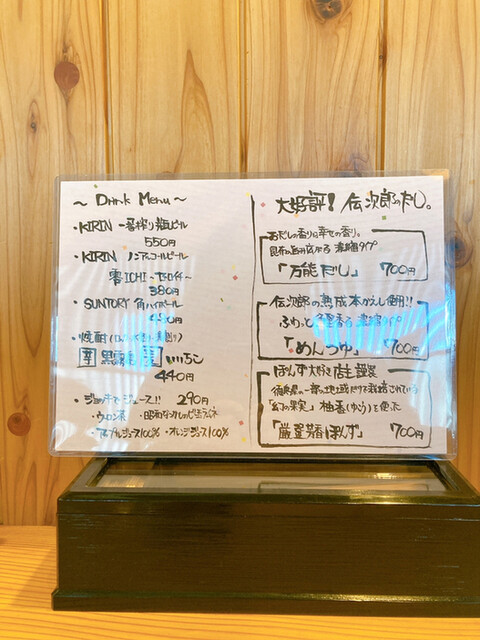 ~ Drink Menu ~
・KIRIN 一番搾り 瓶ビール
550円
・KIRIN ノンアルコールビール
零ICHI ~ゼロイチ~
380円
・SUNTORY 角ハイボール
450円
・焼酎
黒霧島 いいちこ
440円
・ジョッキでジュース!! 290円
・ウーロン茶 ・昭和なつかしのビー玉ラムネ
・アップルジュース100% ・オレンジジュース100%
大好評! 伝次郎のだし。
おだしの香りは幸せの香り。
昆布の旨み広がる 濃縮タイプ
「万能だし」 700円
伝次郎の熟成本かえし使用!!
ふわっと 香る 濃縮タイプ
「めんつゆ」 700円
ぽんず大好き店主謹製
徳島県の一部の地域だけで栽培されている
「幻の果実」 柚香(ゆこう)を使った
「芳香ぽんず」 700円